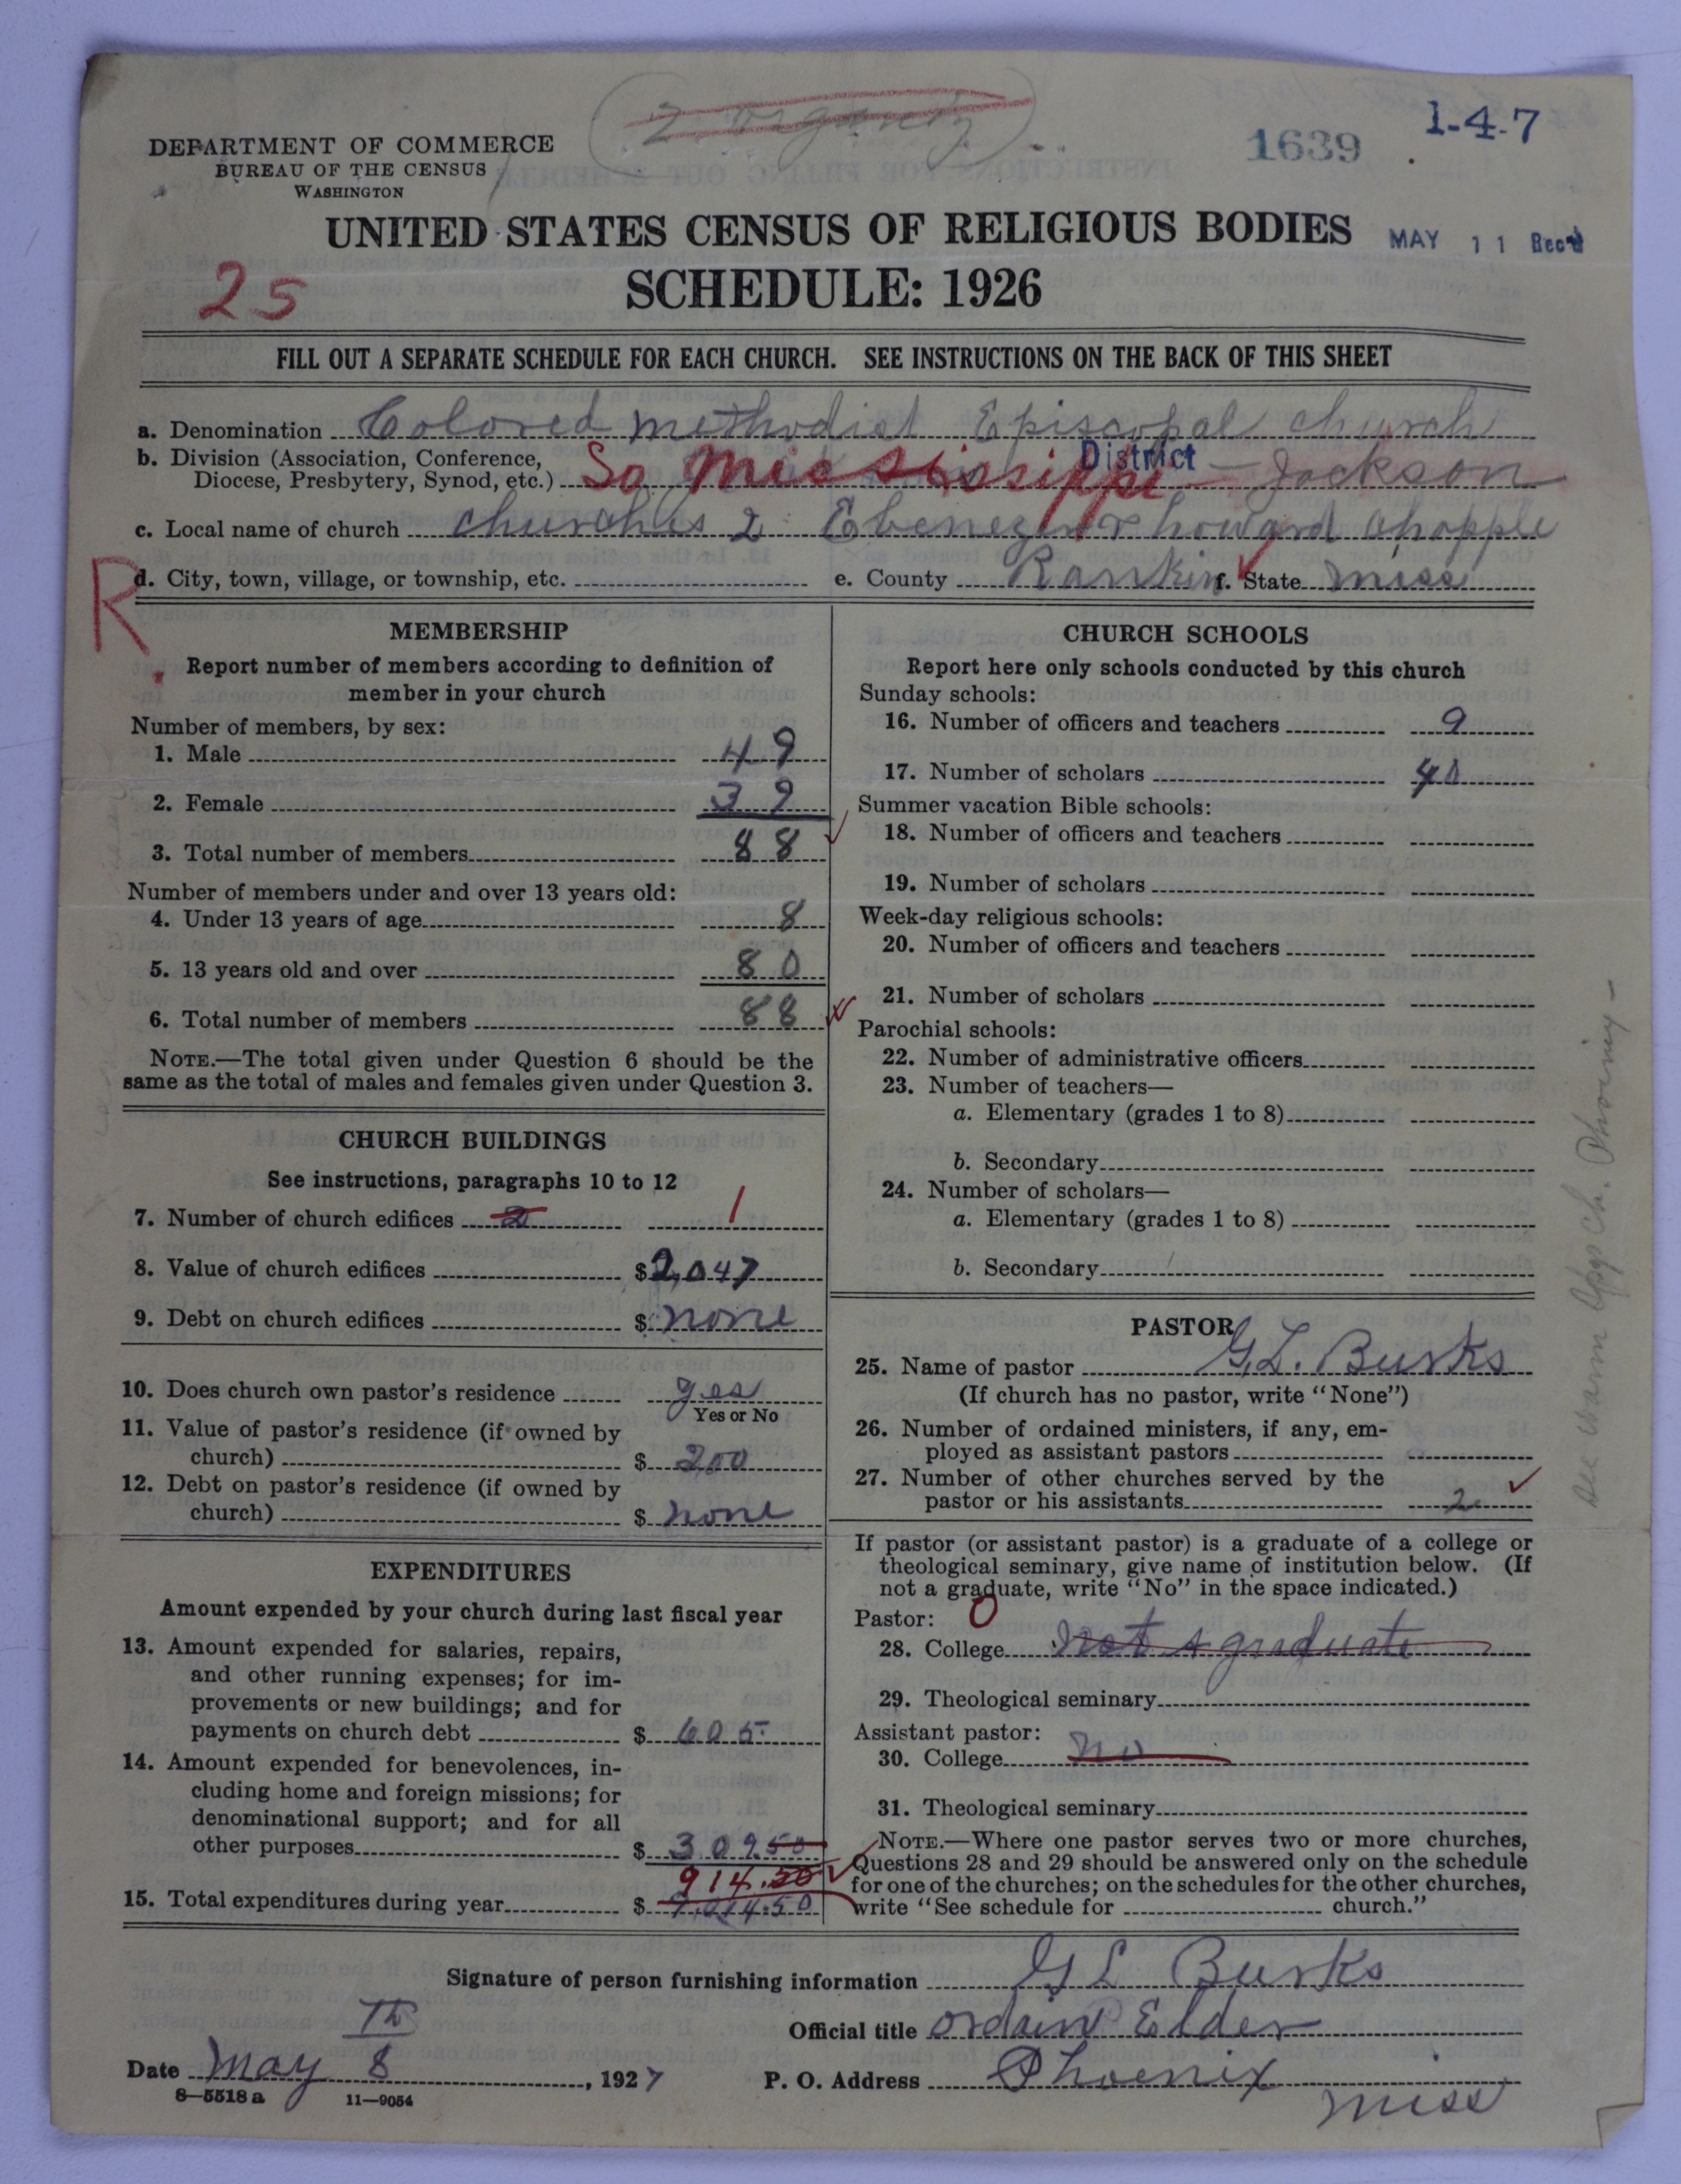 2 organiz
1639
1-4-7
DEPARTMENT OF COMMERCE
BUREAU OF THE CENSUS
WASHINGTON
UNITED STATES CENSUS OF RELIGIOUS BODIES
MAY 11 Rec'd
25
SCHEDULE: 1926
FILL OUT A SEPARATE SCHEDULE FOR EACH CHURCH. SEE INSTRUCTIONS ON THE BACK OF THIS SHEET
a. Denomination Colored Methodist Episcopal church
b. Division (Association, Conference,
Diocese, Presbytery, Synod, etc.) So Mississippi District - Jackson
c. Local name of church churches 2 Ebenezer & howard chapple
R
d. City, town, village, or township, etc. e. County Rankin f. State Miss
MEMBERSHIP
Report number of members according to definition of
member in your church
Number of members, by sex:
1. Male 49
2. Female 39
3. Total number of members 88
Number of members under and over 13 years old:
4. Under 13 years of age 8
5. 13 years old and over 80
6. Total number of members 88
NOTE.—The total given under Question 6 should be the
same as the total of males and females given under Question 3.
CHURCH BUILDINGS
See instructions, paragraphs 10 to 12
7. Number of church edifices 2 1
8. Value of church edifices $2,047
9. Debt on church edifices $ none
10. Does church own pastor's residence yes
Yes or No
11. Value of pastor's residence (if owned by
church) $ 200
12. Debt on pastor's residence (if owned by
church) $ none
EXPENDITURES
Amount expended by your church during last fiscal year
13. Amount expended for salaries, repairs,
and other running expenses; for im-
provements or new buildings; and for
payments on church debt $ 605
14. Amount expended for benevolences, in-
cluding home and foreign missions; for
denominational support; and for all
other purposes $ 309.50
914.50
15. Total expenditures during year $
CHURCH SCHOOLS
Report here only schools conducted by this church
Sunday schools:
16. Number of officers and teachers 9
17. Number of scholars 40
Summer vacation Bible schools:
18. Number of officers and teachers
19. Number of scholars
Week-day religious schools:
20. Number of officers and teachers
21. Number of scholars
Parochial schools:
22. Number of administrative officers
23. Number of teachers—
a. Elementary (grades 1 to 8)
b. Secondary
24. Number of scholars—
a. Elementary (grades 1 to 8)
b. Secondary
PASTOR
25. Name of pastor G.L. Burks
(If church has no pastor, write "None")
26. Number of ordained ministers, if any, em-
ployed as assistant pastors
27. Number of other churches served by the
pastor or his assistants 2
If pastor (or assistant pastor) is a graduate of a college or
theological seminary, give name of institution below. (If
not a graduate, write "No" in the space indicated.)
Pastor: 0
28. College Not a graduate
29. Theological seminary
Assistant pastor:
30. College no
31. Theological seminary
NOTE.—Where one pastor serves two or more churches,
Questions 28 and 29 should be answered only on the schedule
for one of the churches; on the schedules for the other churches,
write "See schedule for church."
Signature of person furnishing information G L Burks
Official title ordain Elder
Date May 8 Th, 1927
P. O. Address Phoenix
Miss
8—5518 a 11—9054